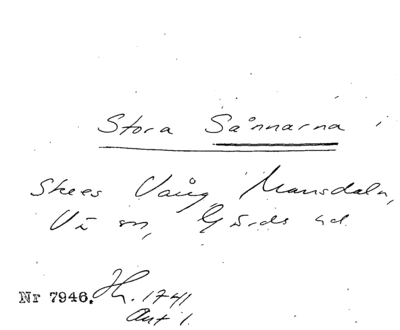 Stora Sånnarna
Skees Vång Mansdala,
Vä sn, Gärds hd.
Nr 7946. Jh. 1741
Akt 1.